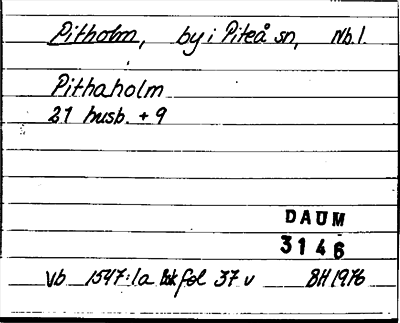 Pitholm, by i Piteå sn, Nb. l.
Pithaholm
21 husb. + 9
DAUM
3146
Vb 1547:1a bk fol 37 v BH 1976